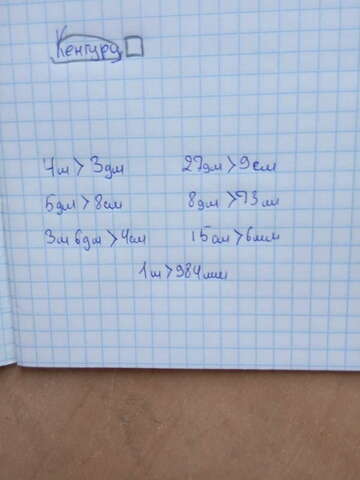 Кенгуру
7м > 3дм 27дм > 9см
5дм > 8см 8дм > 73мм
3м 6дм > 4см 15см > 6мм
1м > 984мм